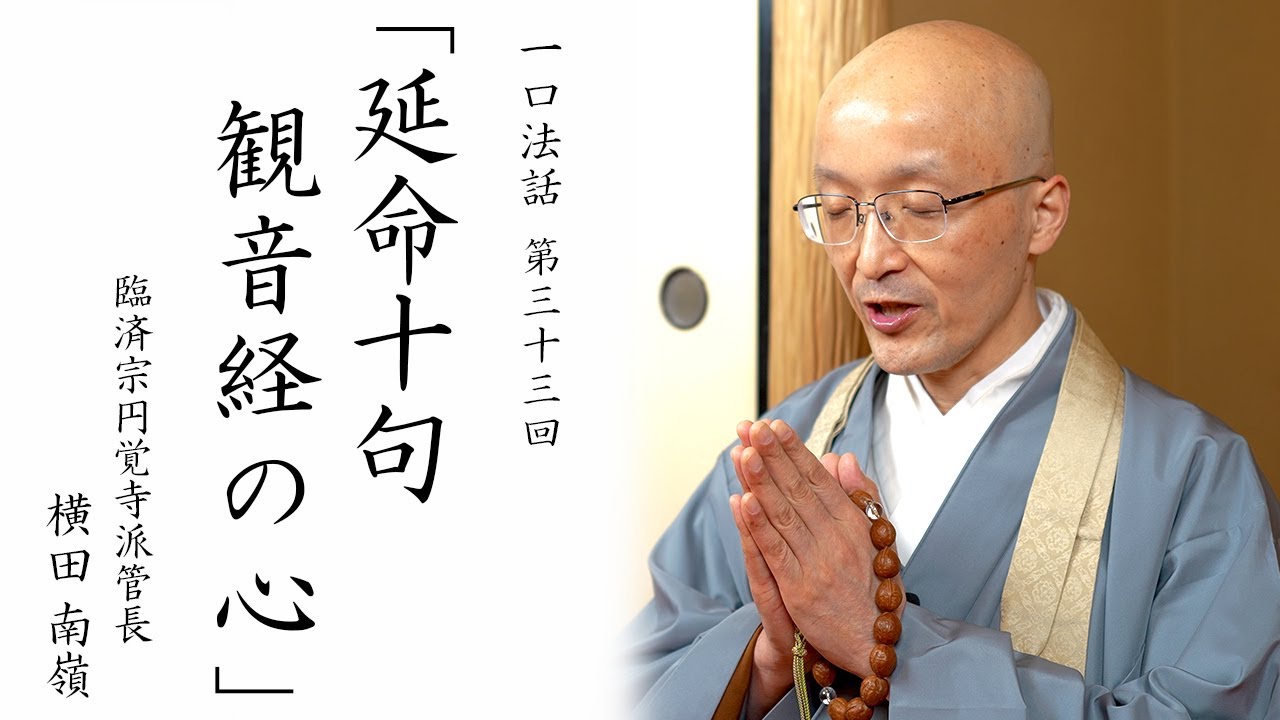 一口法話 第三十三回
「延命十句
観音経の心」
臨済宗円覚寺派管長
横田南嶺